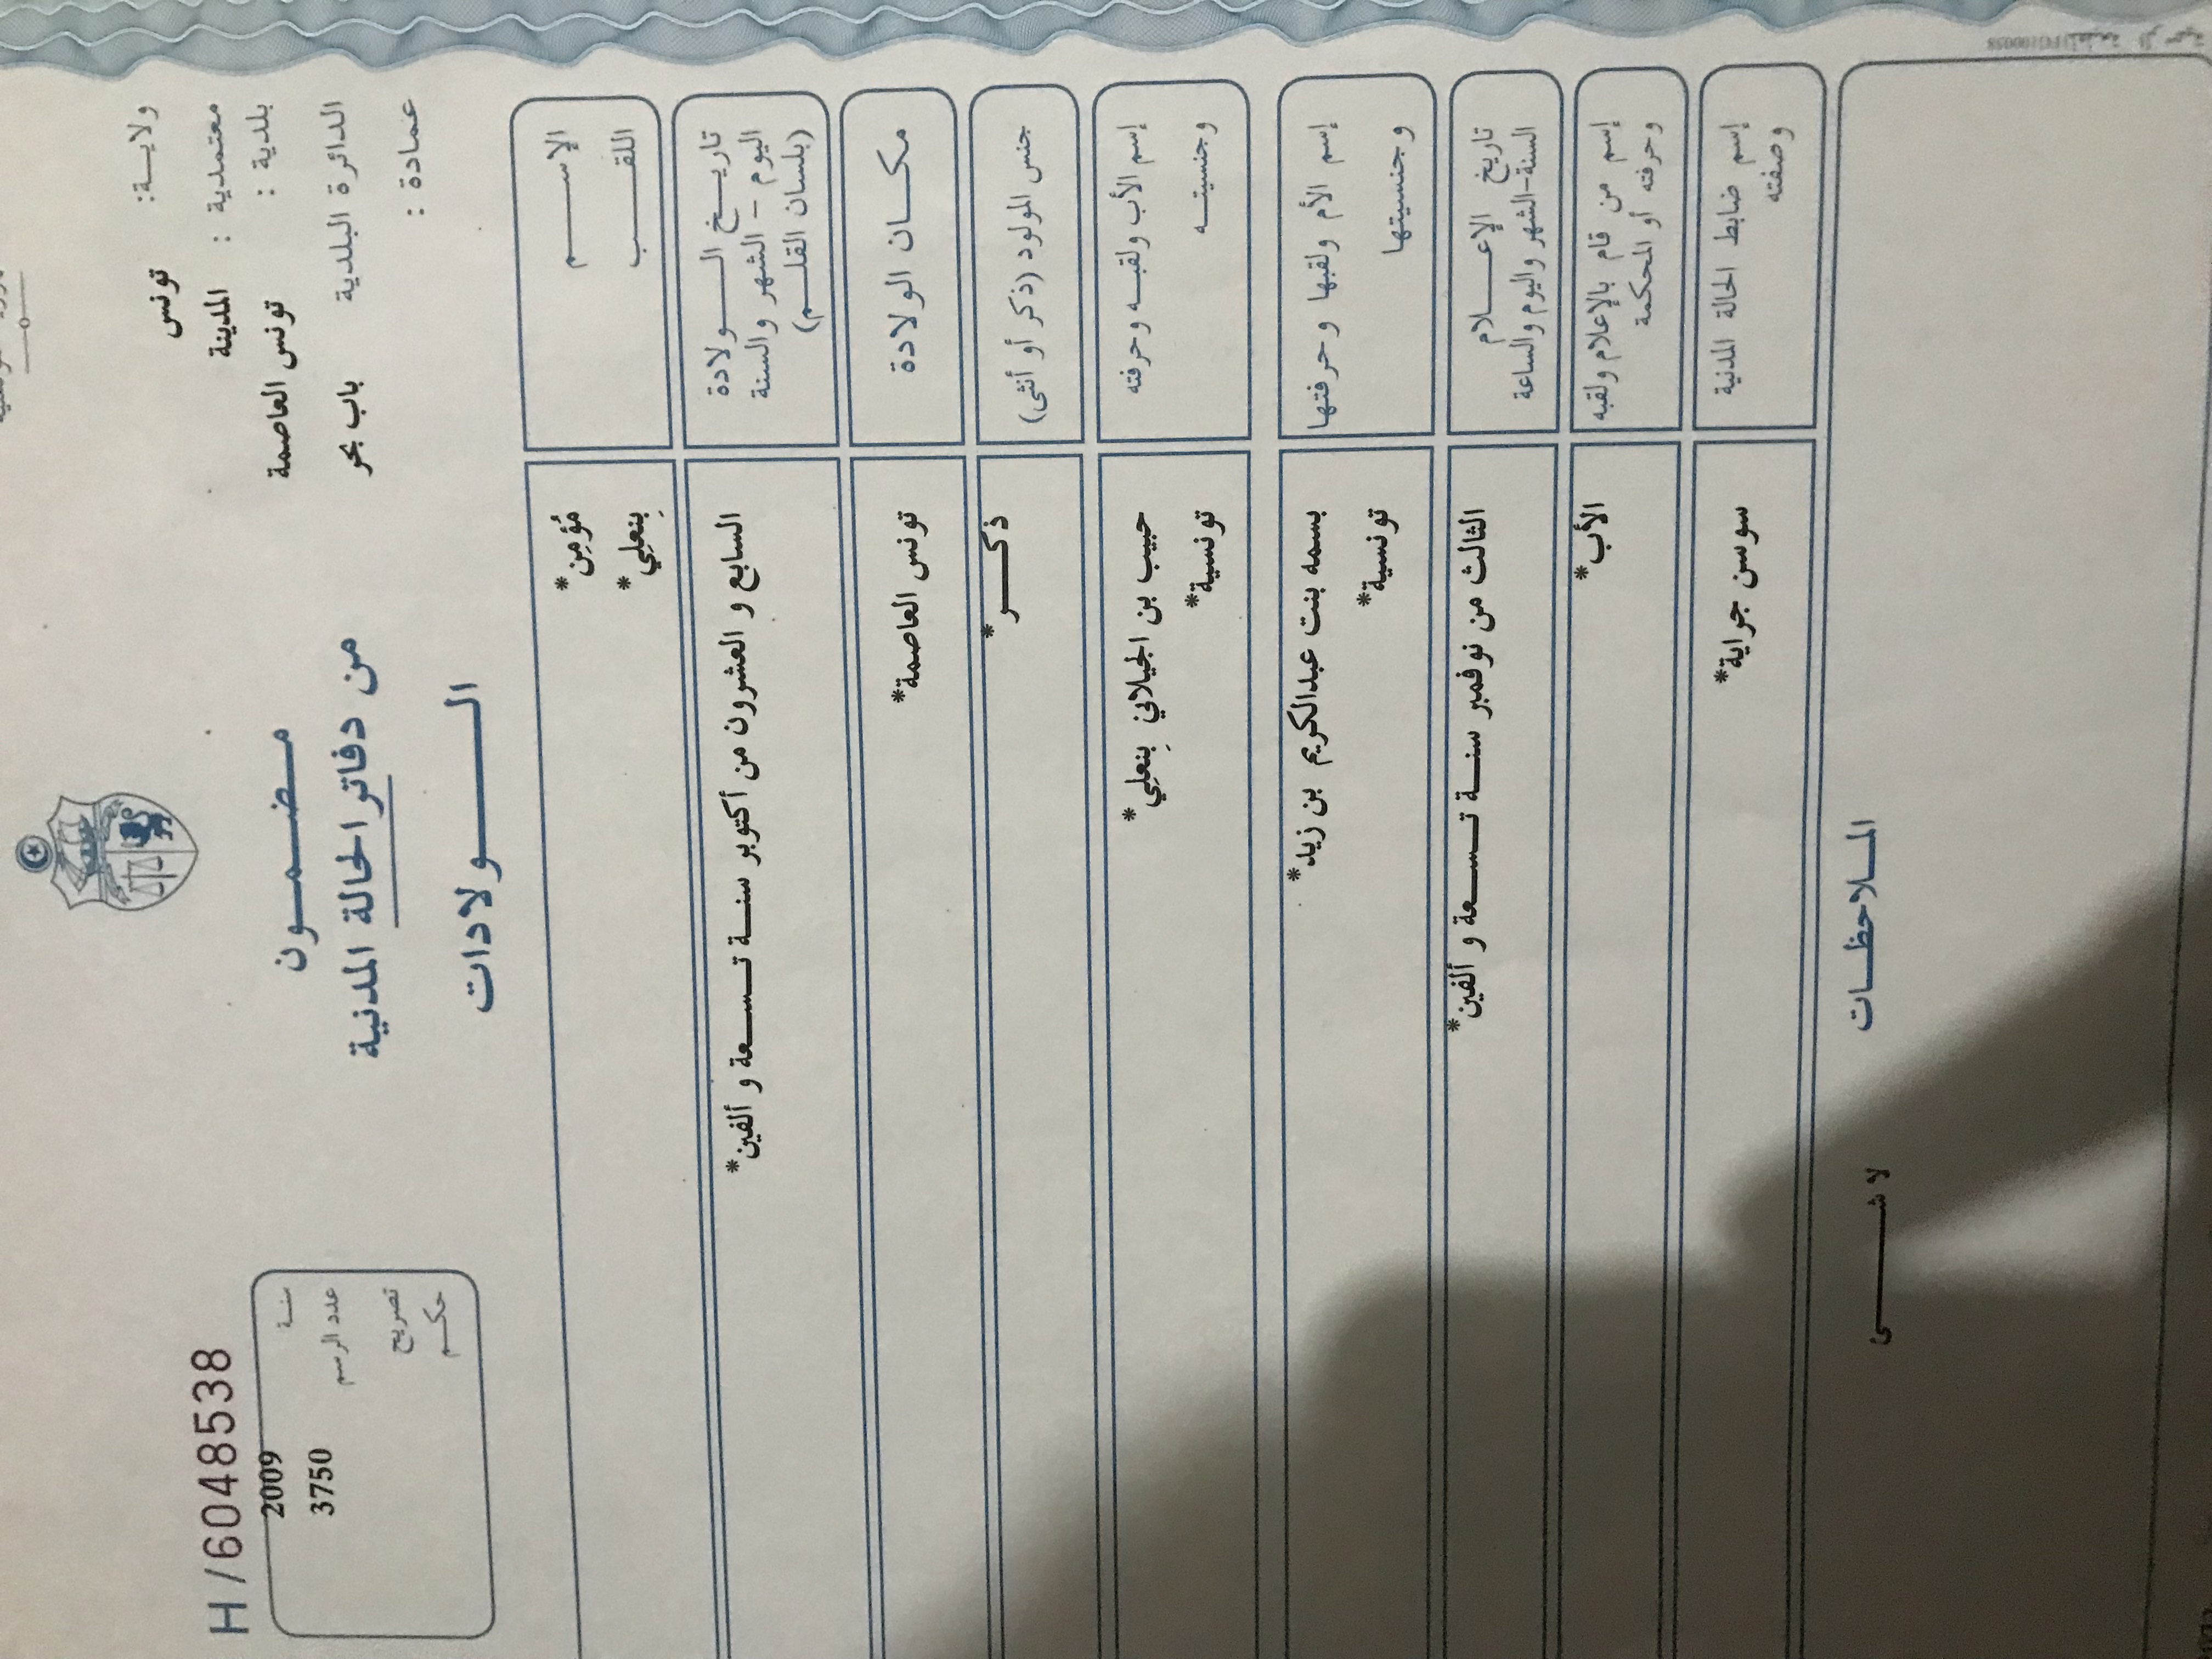 ولايـــة: تونس
معتمدية : المدينة
بلدية : تونس العاصمة
الدائرة البلدية باب بحر
عمادة :
مـضـمـــون
من دفاتر الحالة المدنية
الـــولادات
H/6048538
سنـة 2009
عدد الرسم 3750
تصريح
حكـم
الإســـــم مُؤمِن*
اللقـــــب بِنعلِي*
تاريـــخ الـــــولادة
اليوم - الشهر والسنة
(بلسان القلـــم)
السابع و العشرون من أكتوبر سنـــة تـســـعة و ألفين*
مكـــان الولادة تونس العاصمة*
جنس المولود (ذكر أو أنثى) ذكـــر*
إسم الأب ولقبـــه وحرفته حبيب بن الجيلاني بِنعلِي*
وجنسيتـــه تونسية*
إسم الأم ولقبها وحرفتها بسمه بنت عبدالكريم بن زيد*
وجنسيتها تونسية*
تاريخ الإعـــــلام
السنة-الشهر واليوم والساعة
الثالث من نوفمبر سنـــة تـســـعة و ألفين*
إسم من قام بالإعلام ولقبه
وحرفته أو المحكمة
الأب*
إسم ضابط الحالة المدنية
وصفته
سوسن جراية*
المـلاحظـــات
لا شـــــئ